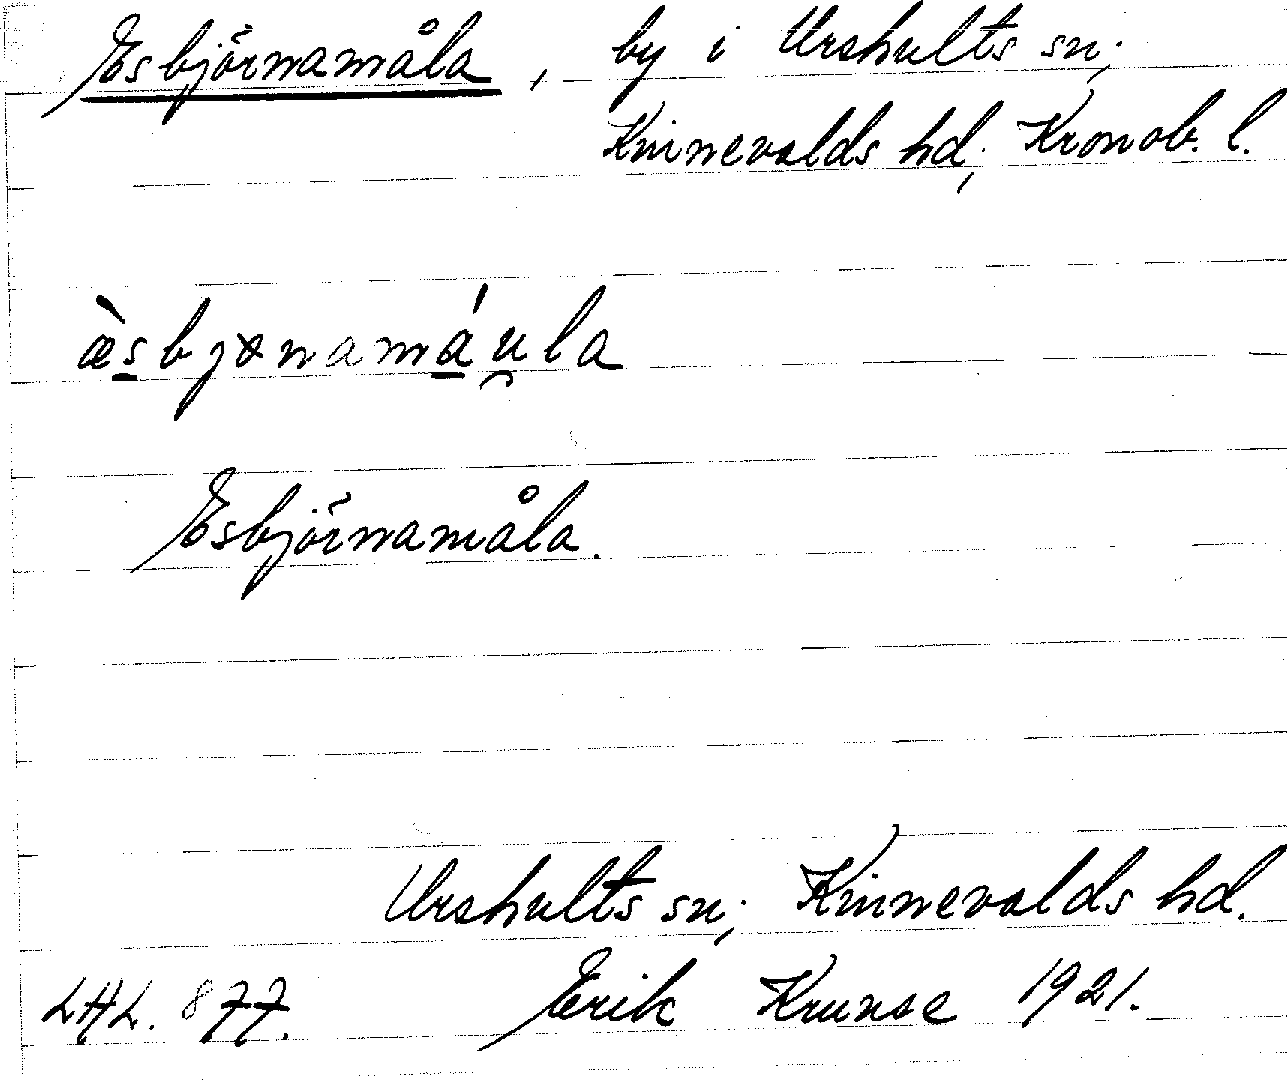 Esbjörnamåla, by i Urshults sn;
Kinnevalds hd, Kronob. l.
æ̀s̲bjønamá̲u̯la
Esbjörnamåla.
Urshults sn; Kinnevalds hd.
LAL. 877. Erik Kruuse 1921.